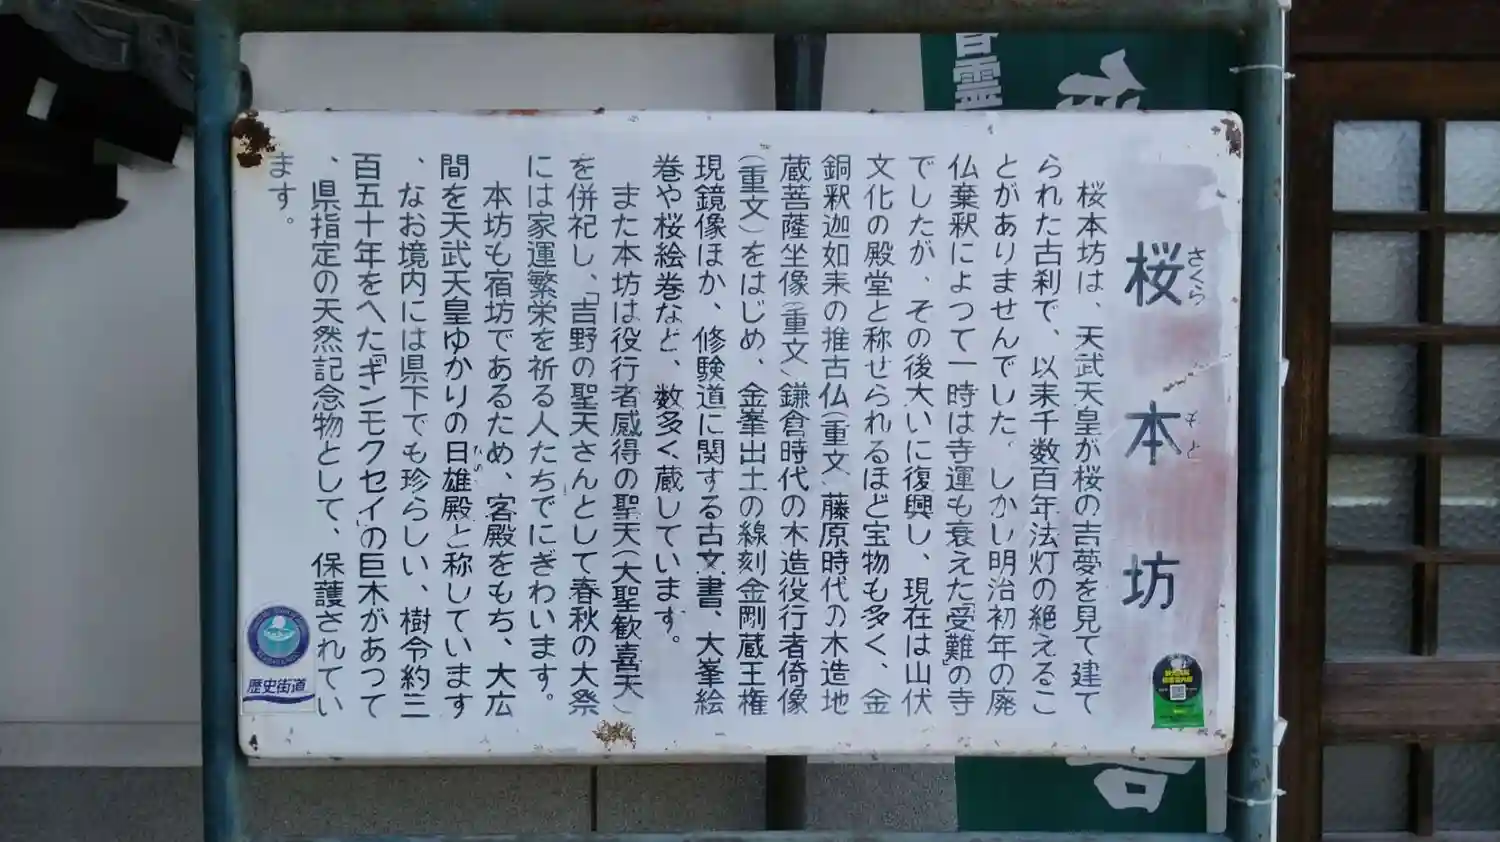 桜本坊
さくら
もと
桜本坊は、天武天皇が桜の吉夢を見て建て
られた古刹で、以来千数百年法灯の絶えるこ
とがありませんでした。しかし明治初年の廃
仏棄釈によって一時は寺運も衰えた「受難」の寺
でしたが、その後大いに復興し、現在は山伏
文化の殿堂と称せられるほど宝物も多く、金
銅釈迦如来の推古仏(重文)藤原時代の木造地
蔵菩薩坐像(重文)鎌倉時代の木造役行者倚像
(重文)をはじめ、金峯出土の線刻金剛蔵王権
現鏡像ほか、修験道に関する古文書、大峯絵
巻や桜絵巻など、数多く蔵しています。
また本坊は役行者感得の聖天(大聖歓喜天)
を併祀し、「吉野の聖天さんとして春秋の大祭
には家運繁栄を祈る人たちでにぎわいます。
本坊も宿坊であるため、客殿をもち、大広
間を天武天皇ゆかりの日雄殿と称しています
ひのお
、なお境内には県下でも珍らしい、樹令約三
百五十年をへた「ギンモクセイ」の巨木があって
、県指定の天然記念物として、保護されてい
ます。
歴史街道
音霊